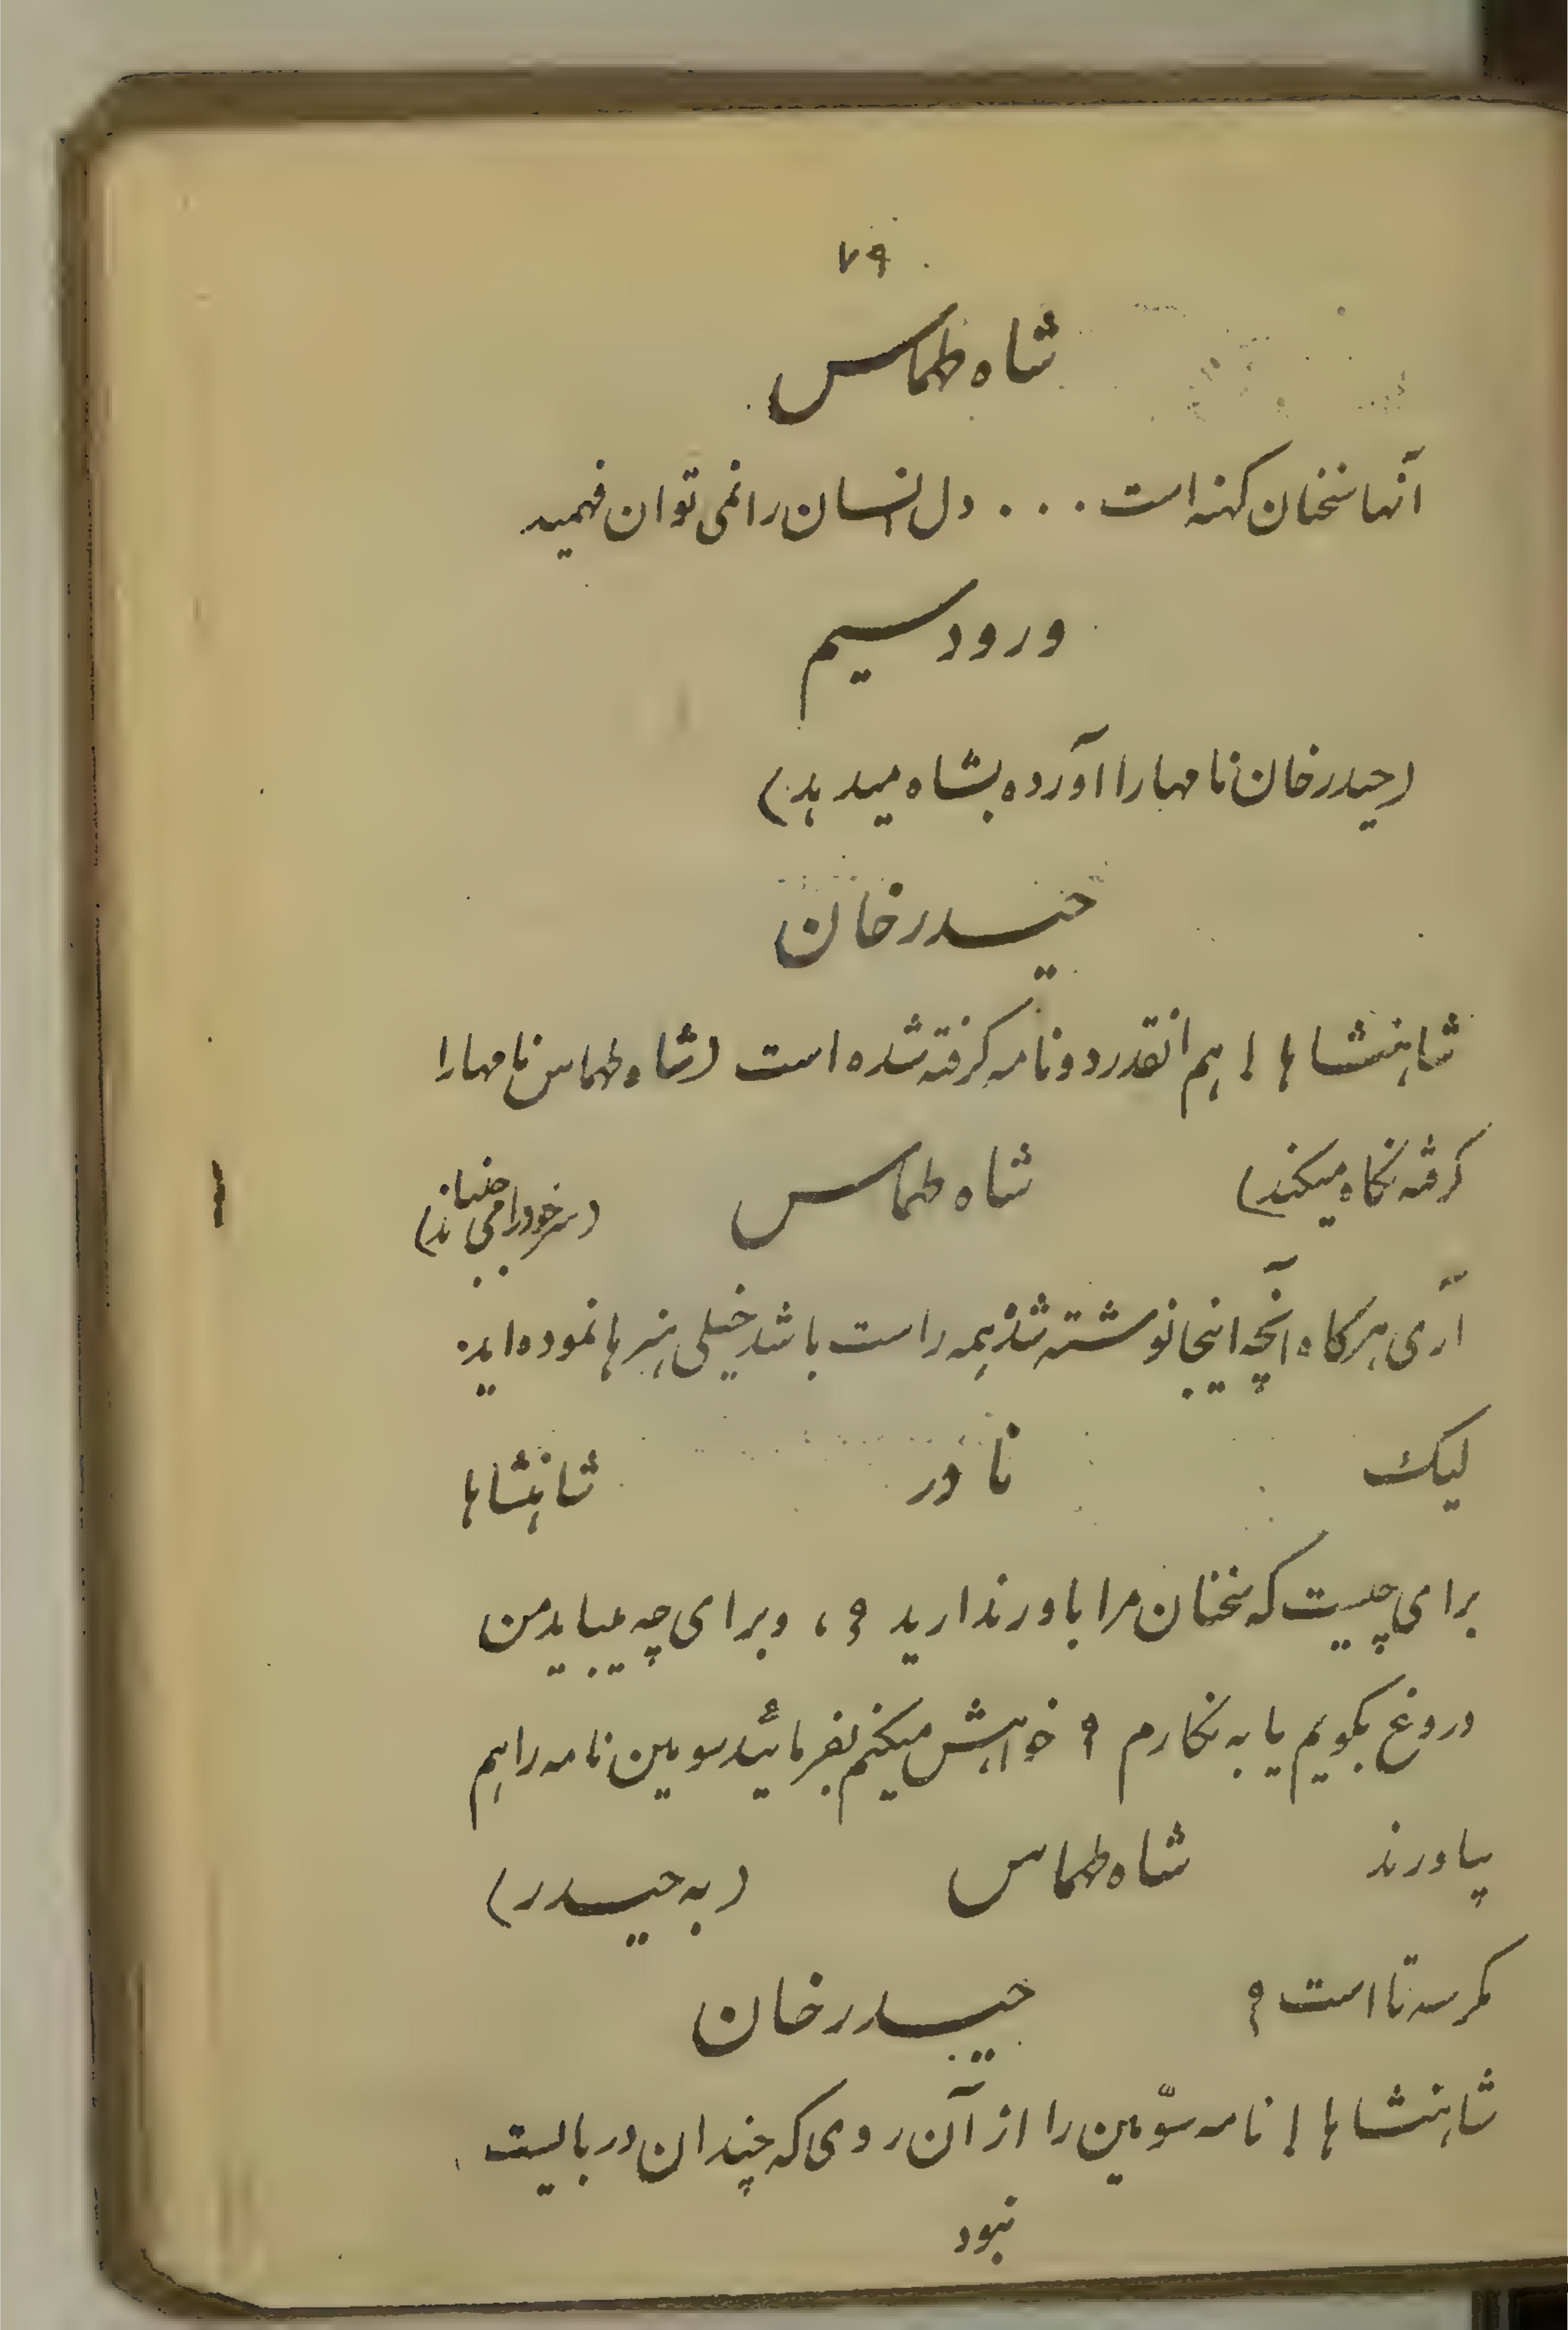 ۷۹
شاه طهماس
آنها سخنان کهنه است . . . دل انسان را نمی توان فهمید
ورود سیم
(حیدر خان نامها را آورده بشاه میدهد)
حیدر خان
شاهنشاها ! هم انقدر دو نامه کرفته شده است (شاه طهماس نامها را
کرفته نکاه میکند) شاه طهماس (سر خود را می جنباند)
آری هرکاه آنچه اینجا نوشته شده همه راست باشد خیلی هنرها نموده اید.
لیک نادر شاهنشاها
برای چیست که سخنان مرا باور ندارید ؟ ، و برای چه میباید من
دروغ بکویم یا به نکارم ؟ خواهش میکنم بفرمائید سومین نامه را هم
بیاورند شاه طهماس (به حیدر)
مکر سه تا است ؟ حیدر خان
شاهنشاها ! نامه سوّمین را از آن روی که چندان در بایست
نبود